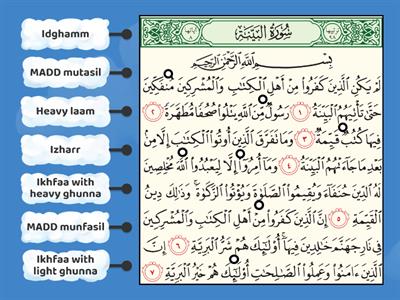 Idghamm
MADD mutasil
Heavy laam
Izharr
Ikhfaa with
heavy ghunna
MADD munfasil
Ikhfaa with
light ghunna
سُورَةُ الْبَيِّنَةِ
بِسْمِ اللَّهِ الرَّحْمَٰنِ الرَّحِيمِ
لَمْ يَكُنِ الَّذِينَ كَفَرُوا مِنْ أَهْلِ الْكِتَٰبِ وَالْمُشْرِكِينَ مُنفَكِّينَ
حَتَّىٰ تَأْتِيَهُمُ الْبَيِّنَةُ ١ رَسُولٌ مِّنَ اللَّهِ يَتْلُوا صُحُفًا مُّطَهَّرَةً ٢
فِيهَا كُتُبٌ قَيِّمَةٌ ٣ وَمَا تَفَرَّقَ الَّذِينَ أُوتُوا الْكِتَٰبَ إِلَّا مِنۢ
بَعْدِ مَا جَآءَتْهُمُ الْبَيِّنَةُ ٤ وَمَآ أُمِرُوٓا إِلَّا لِيَعْبُدُوا اللَّهَ مُخْلِصِينَ
لَهُ الدِّينَ حُنَفَآءَ وَيُقِيمُوا الصَّلَوٰةَ وَيُؤْتُوا الزَّكَوٰةَ وَذَٰلِكَ دِينُ
الْقَيِّمَةِ ٥ إِنَّ الَّذِينَ كَفَرُوا مِنْ أَهْلِ الْكِتَٰبِ وَالْمُشْرِكِينَ
فِي نَارِ جَهَنَّمَ خَٰلِدِينَ فِيهَآ أُو۟لَٰٓئِكَ هُمْ شَرُّ الْبَرِيَّةِ ٦ إِنَّ
الَّذِينَ ءَامَنُوا وَعَمِلُوا الصَّٰلِحَٰتِ أُو۟لَٰٓئِكَ هُمْ خَيْرُ الْبَرِيَّةِ ٧